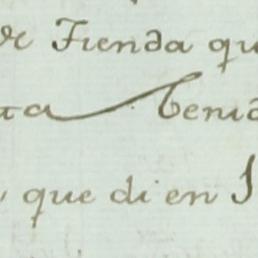 de Tienda qu
ta Benid
que di en S